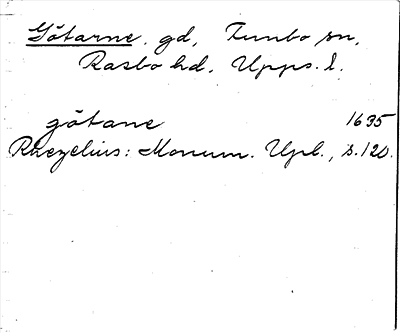 Götarne. gd, Funbo sn,
Rasbo hd. Upps. l.
götane 1635
Rhezelius: Monum. Upl., s. 120.